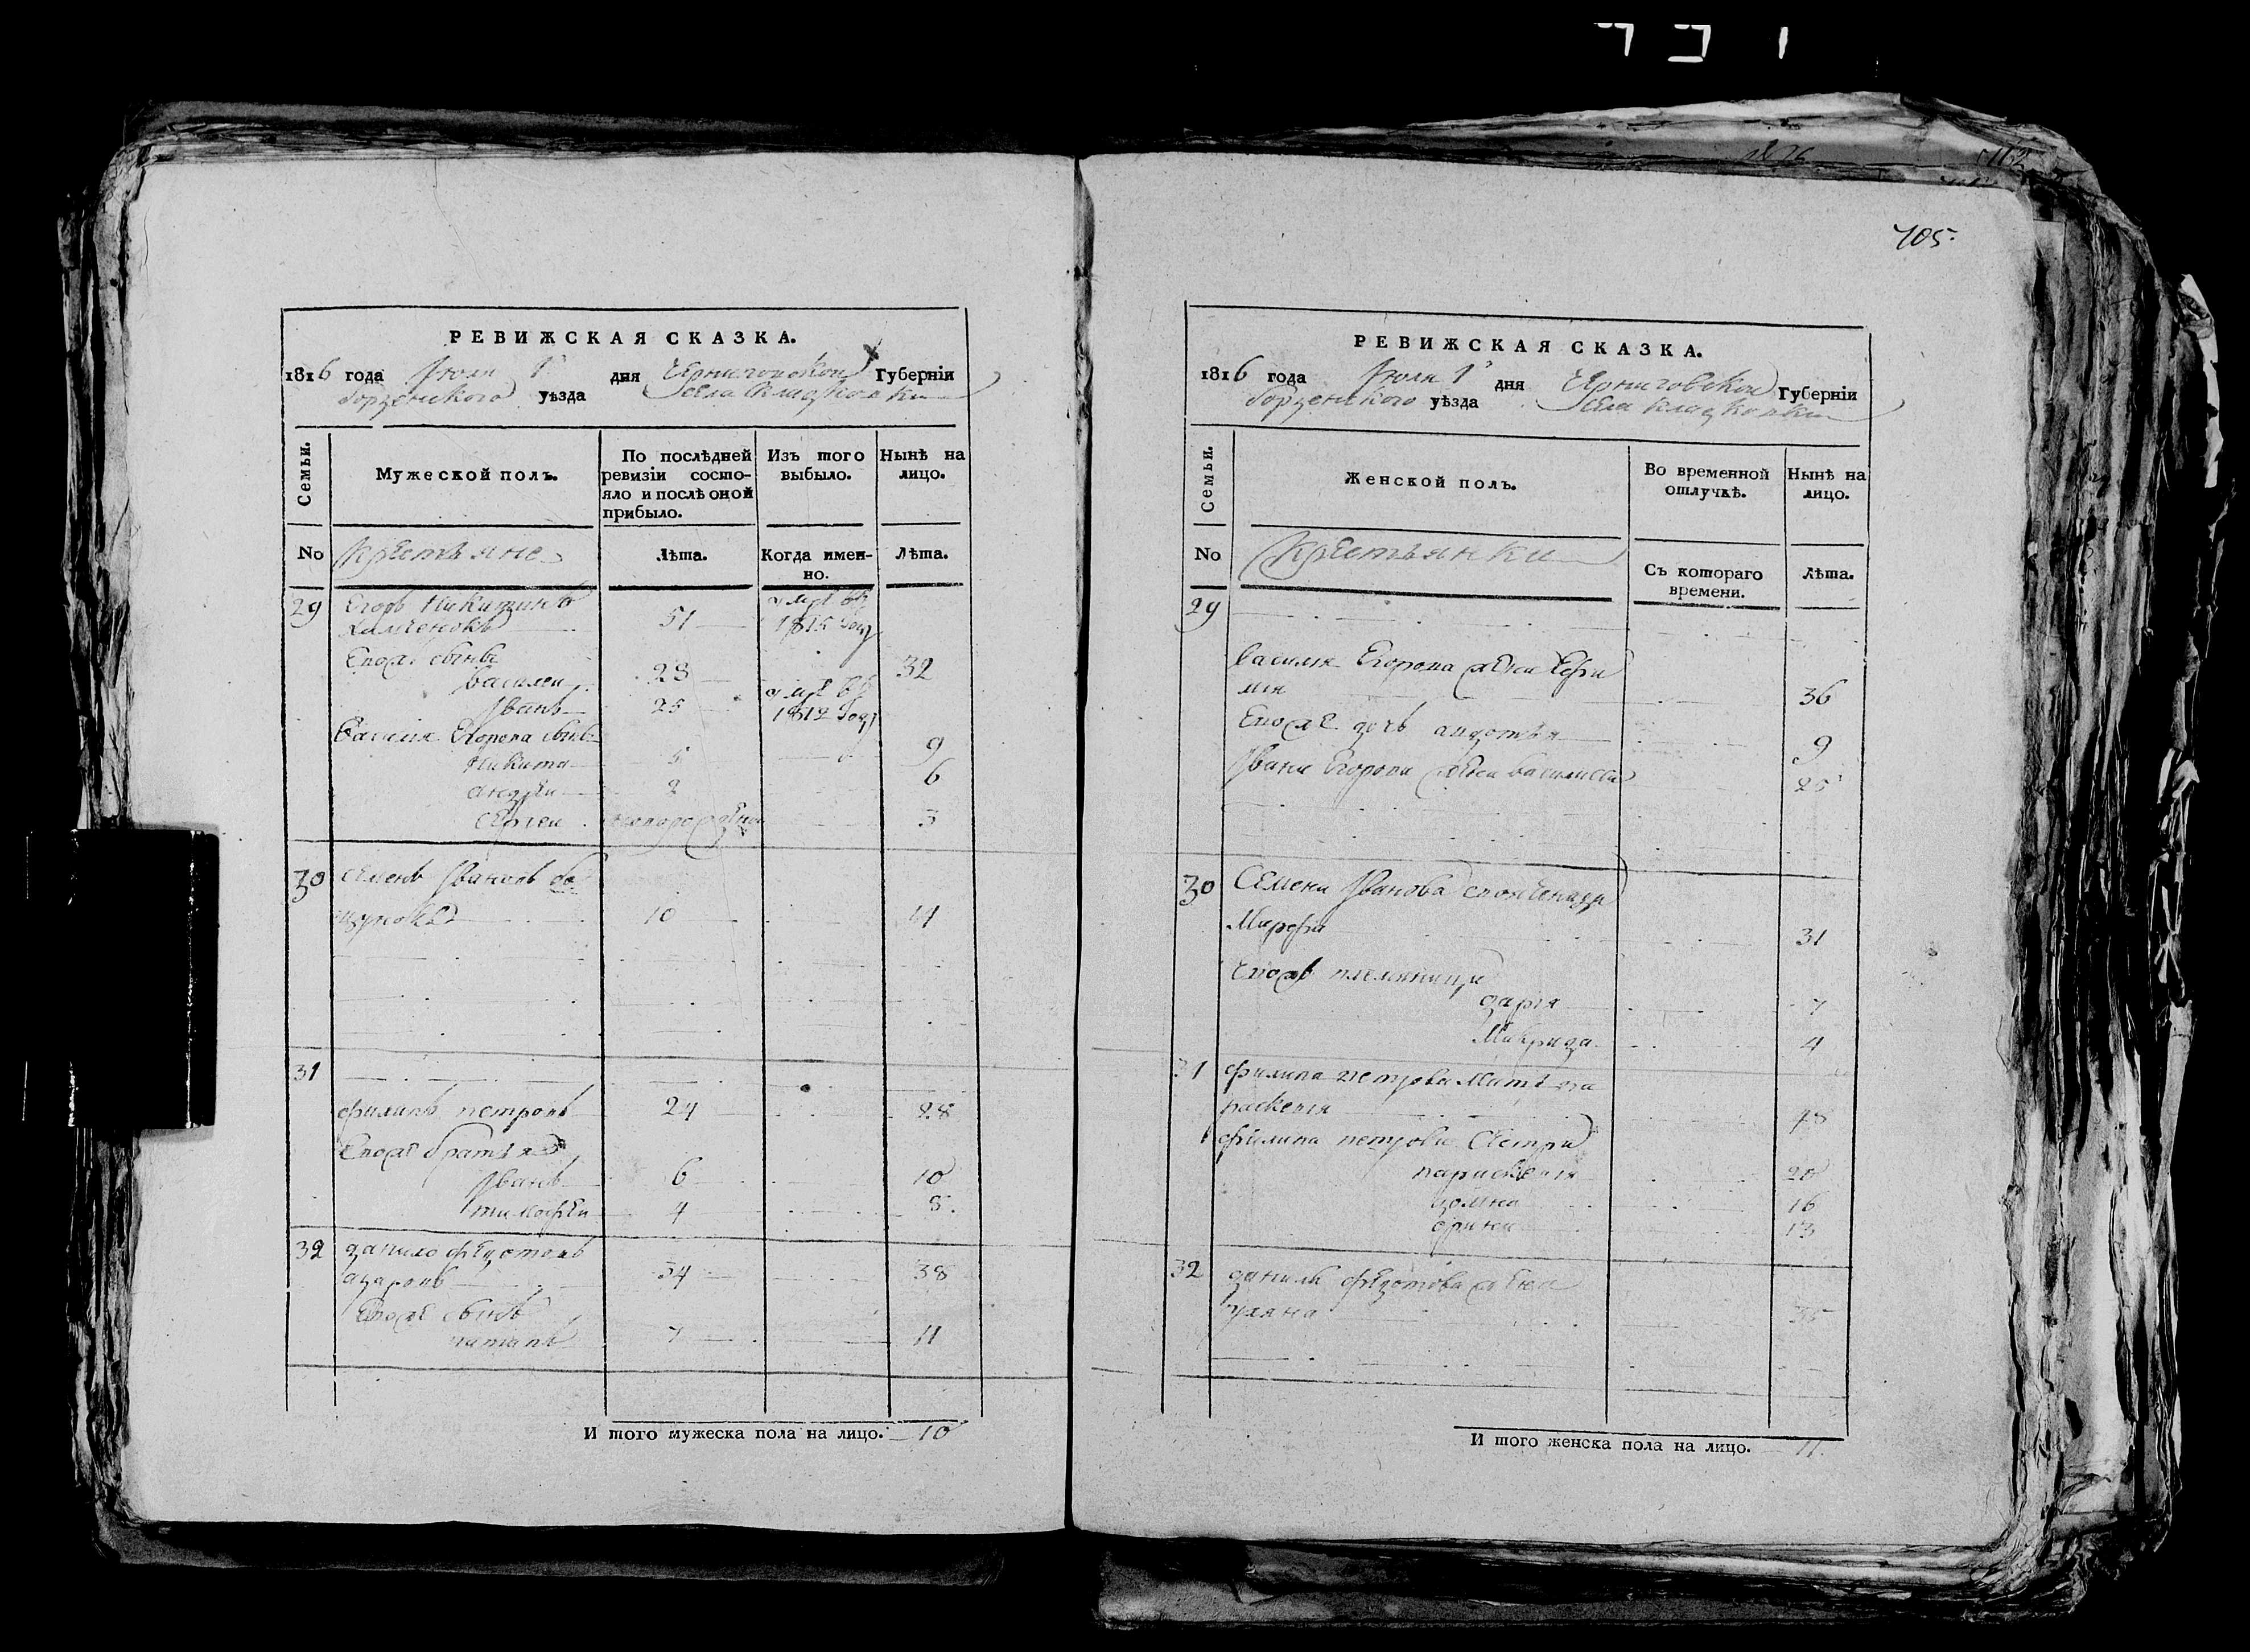 705.
РЕВИЖСКАЯ СКАЗКА.
1816 года Июля 1 дня Черниговской Губерніи
борзенского уѣзда села
Семьи.
Мужеской полъ.
По послѣдней ревизіи состо-
яло и послѣ оной прибыло.
Изъ того выбыло.
Нынѣ на лицо.
No
крестьяне
Лѣта.
Когда имен-
но.
Лѣта.
29 Егоръ Никитинъ 51 умре въ
1815 году
Егоже сынъ
Василей 28 32
Іванъ 25 умре въ
1812 году
Василя Егорова сынъ
Никита 5 9
андрей 2 6
Сергей новорожденой 3
30 Семенъ Івановъ
10 14
31
филипъ петровъ 24 28
Егоже братья
Іванъ 6 10
тимофей 4 8.
32 данило федотовъ
азаровъ 34 38
Егоже сынъ
потапъ 7 11
И того мужеска пола на лицо. 10
РЕВИЖСКАЯ СКАЗКА.
1816 года Июля 1 дня Черниговской Губерніи
борзенского уѣзда села
Семьи.
Женской полъ.
Во временной отлучкѣ.
Нынѣ на лицо.
No
крестьянки
Съ котораго
времени.
Лѣта.
29
Василя Егорова жена
36
Егоже дочь авдотья 9
Івана Егорова жена василиса 25
30 Семена Іванова
Марфа 31
Егожъ племяници
дарія 7
Макрида 4
31 филипа петрова мать па
раскевія 48
филипа петрова Сестри
параскевія 20
домна 16
орина 13
32 данила федотова жена
уляна 35
И того женска пола на лицо. 11.